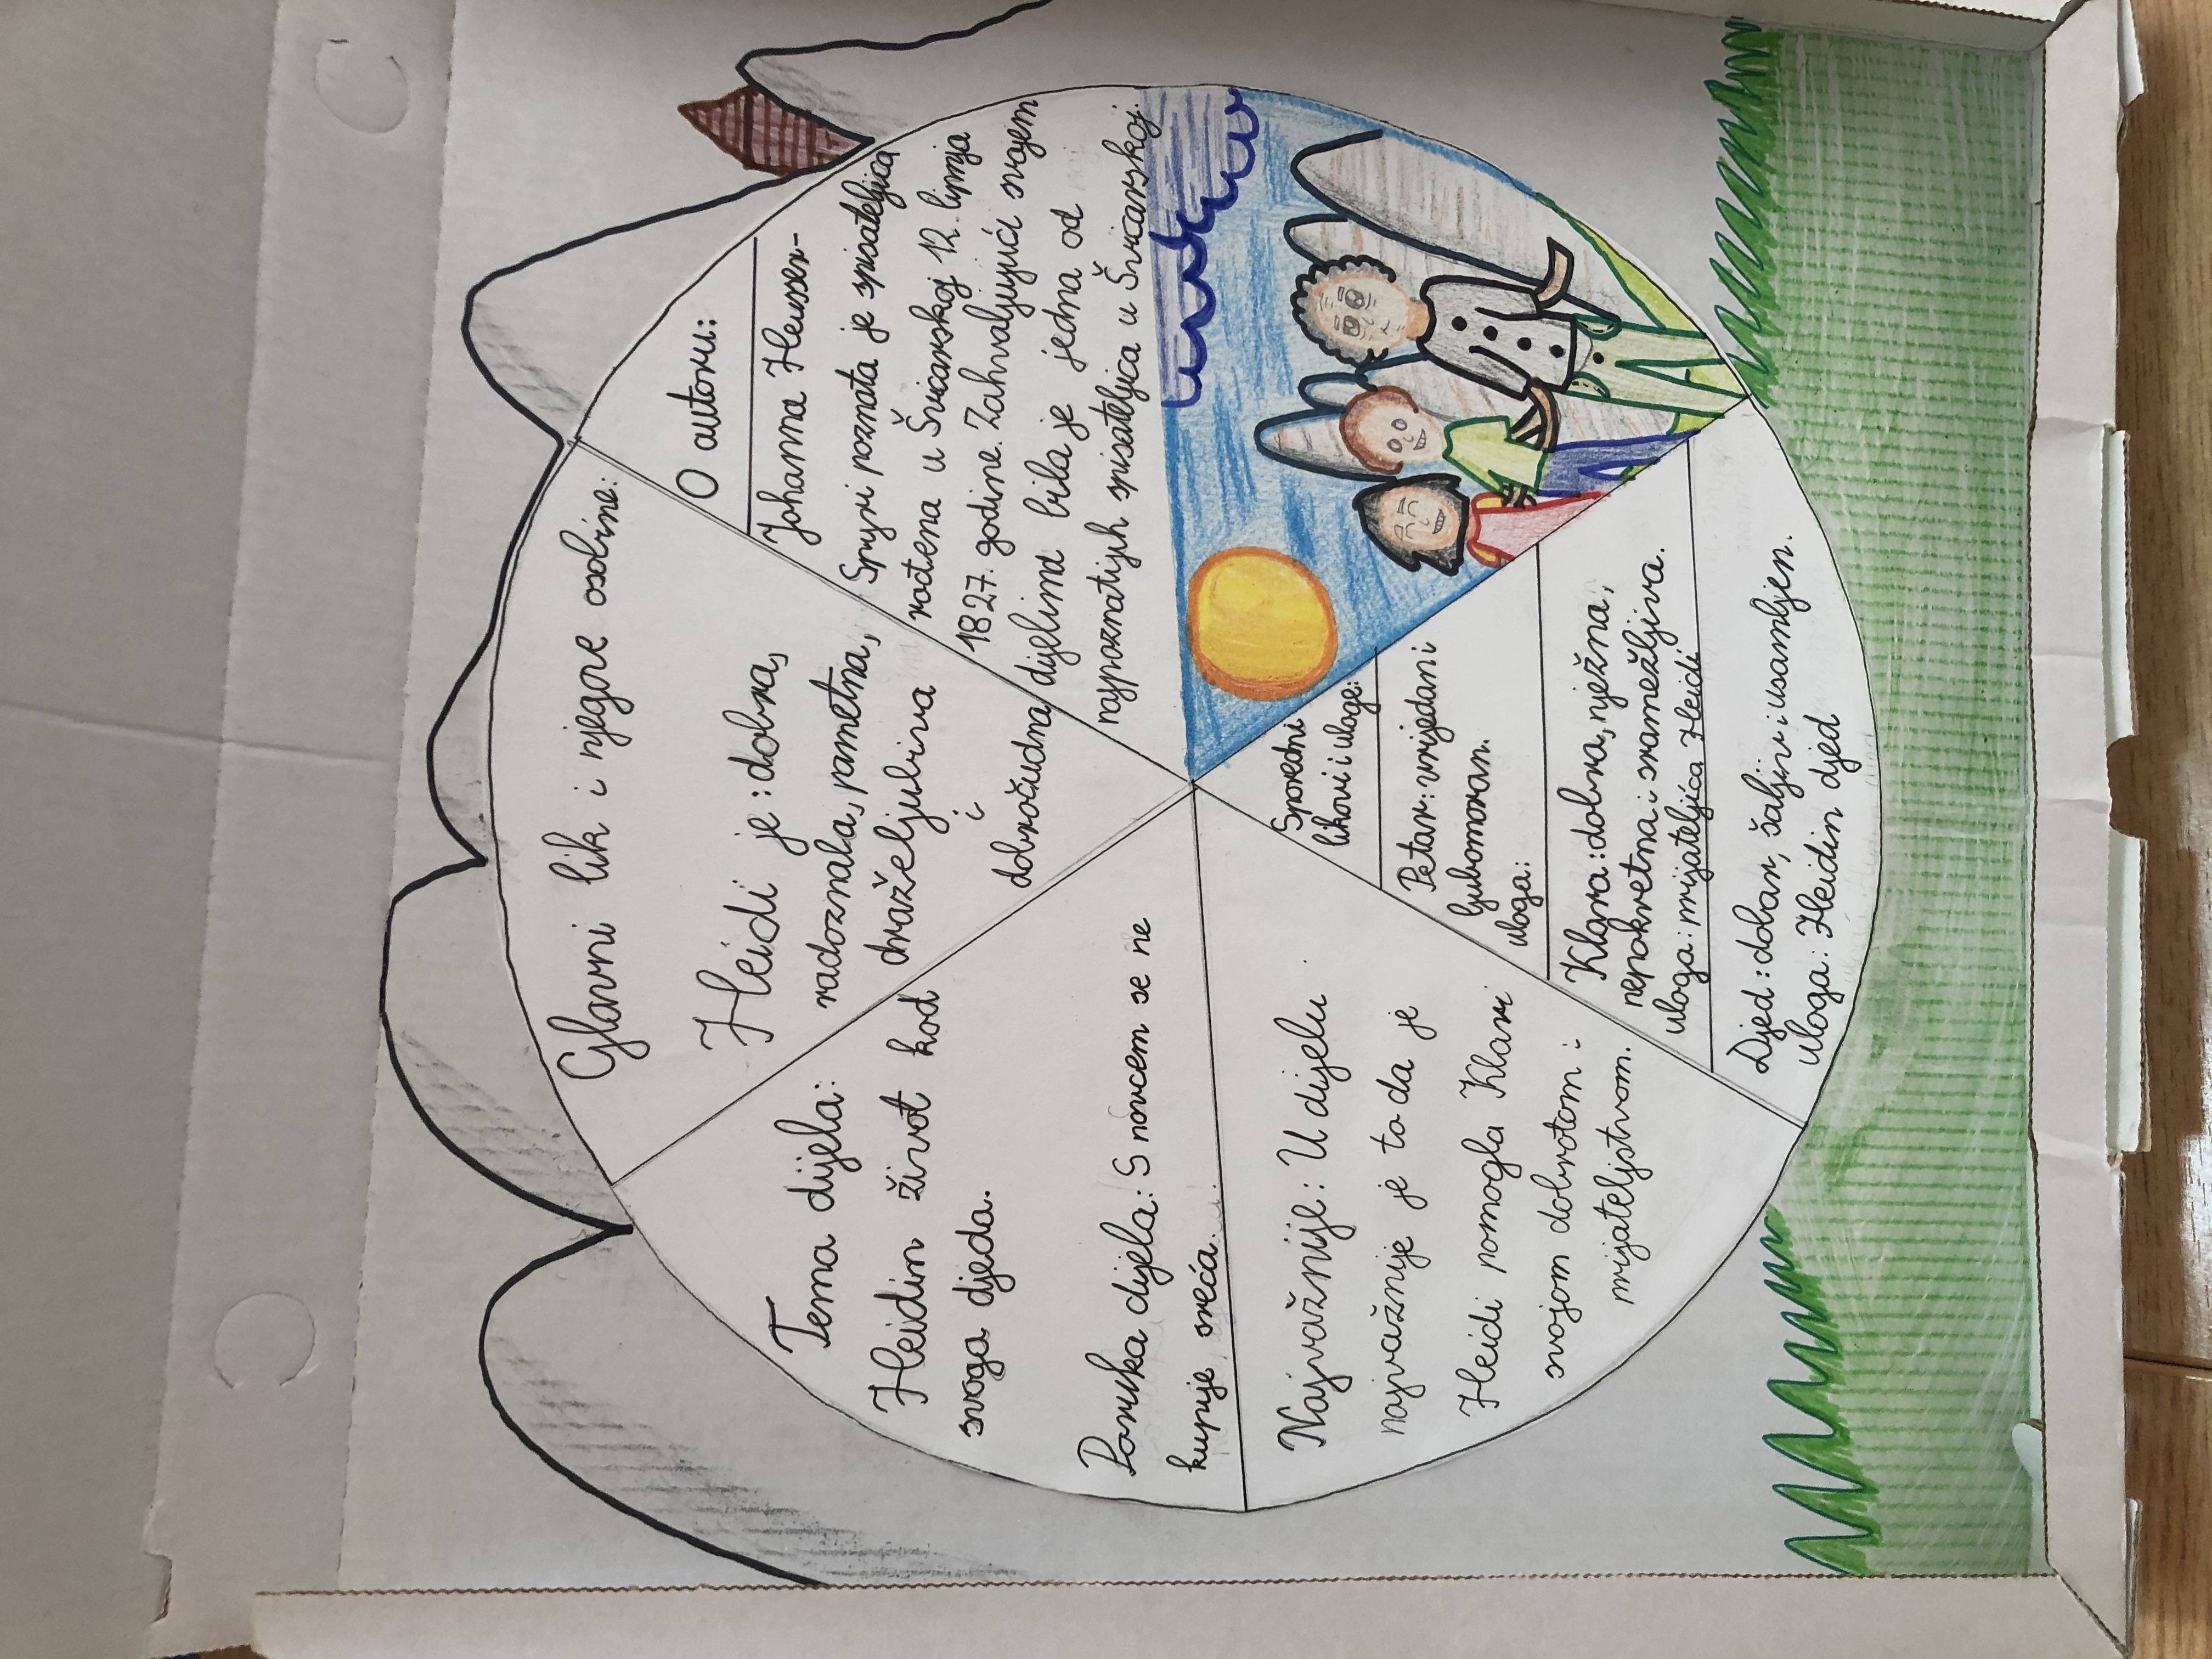 Glavni lik i njegove osobine:
Heidi je: dobra,
radoznala, pametna,
draželjubiva
i
dobroćudna
O autoru:
Johanna Heusser-
Spyri poznata je spisateljica
rođena u Švicarskoj 12. lipnja
1827. godine. Zahvaljujući svojem
dijelima bila je jedna od
najpoznatijih spisateljica u Švicarskoj.
Tema dijela:
Heidin život kod
svoga djeda.
Poruka dijela: S novcem se ne
kupuje sreća.
Najvažnije: U dijelu
najvažnije je to da je
Heidi pomogla Klari
svojom dobrotom i
prijateljstvom.
Sporedni
likovi i uloge:
Petar: vrijedan i
ljubomoran.
uloga:
Klara: dobra, nježna,
nepokretna i sramežljiva.
uloga: prijateljica Heidi
Djed: dobar, šaljiv i usamljen.
uloga: Heidin djed